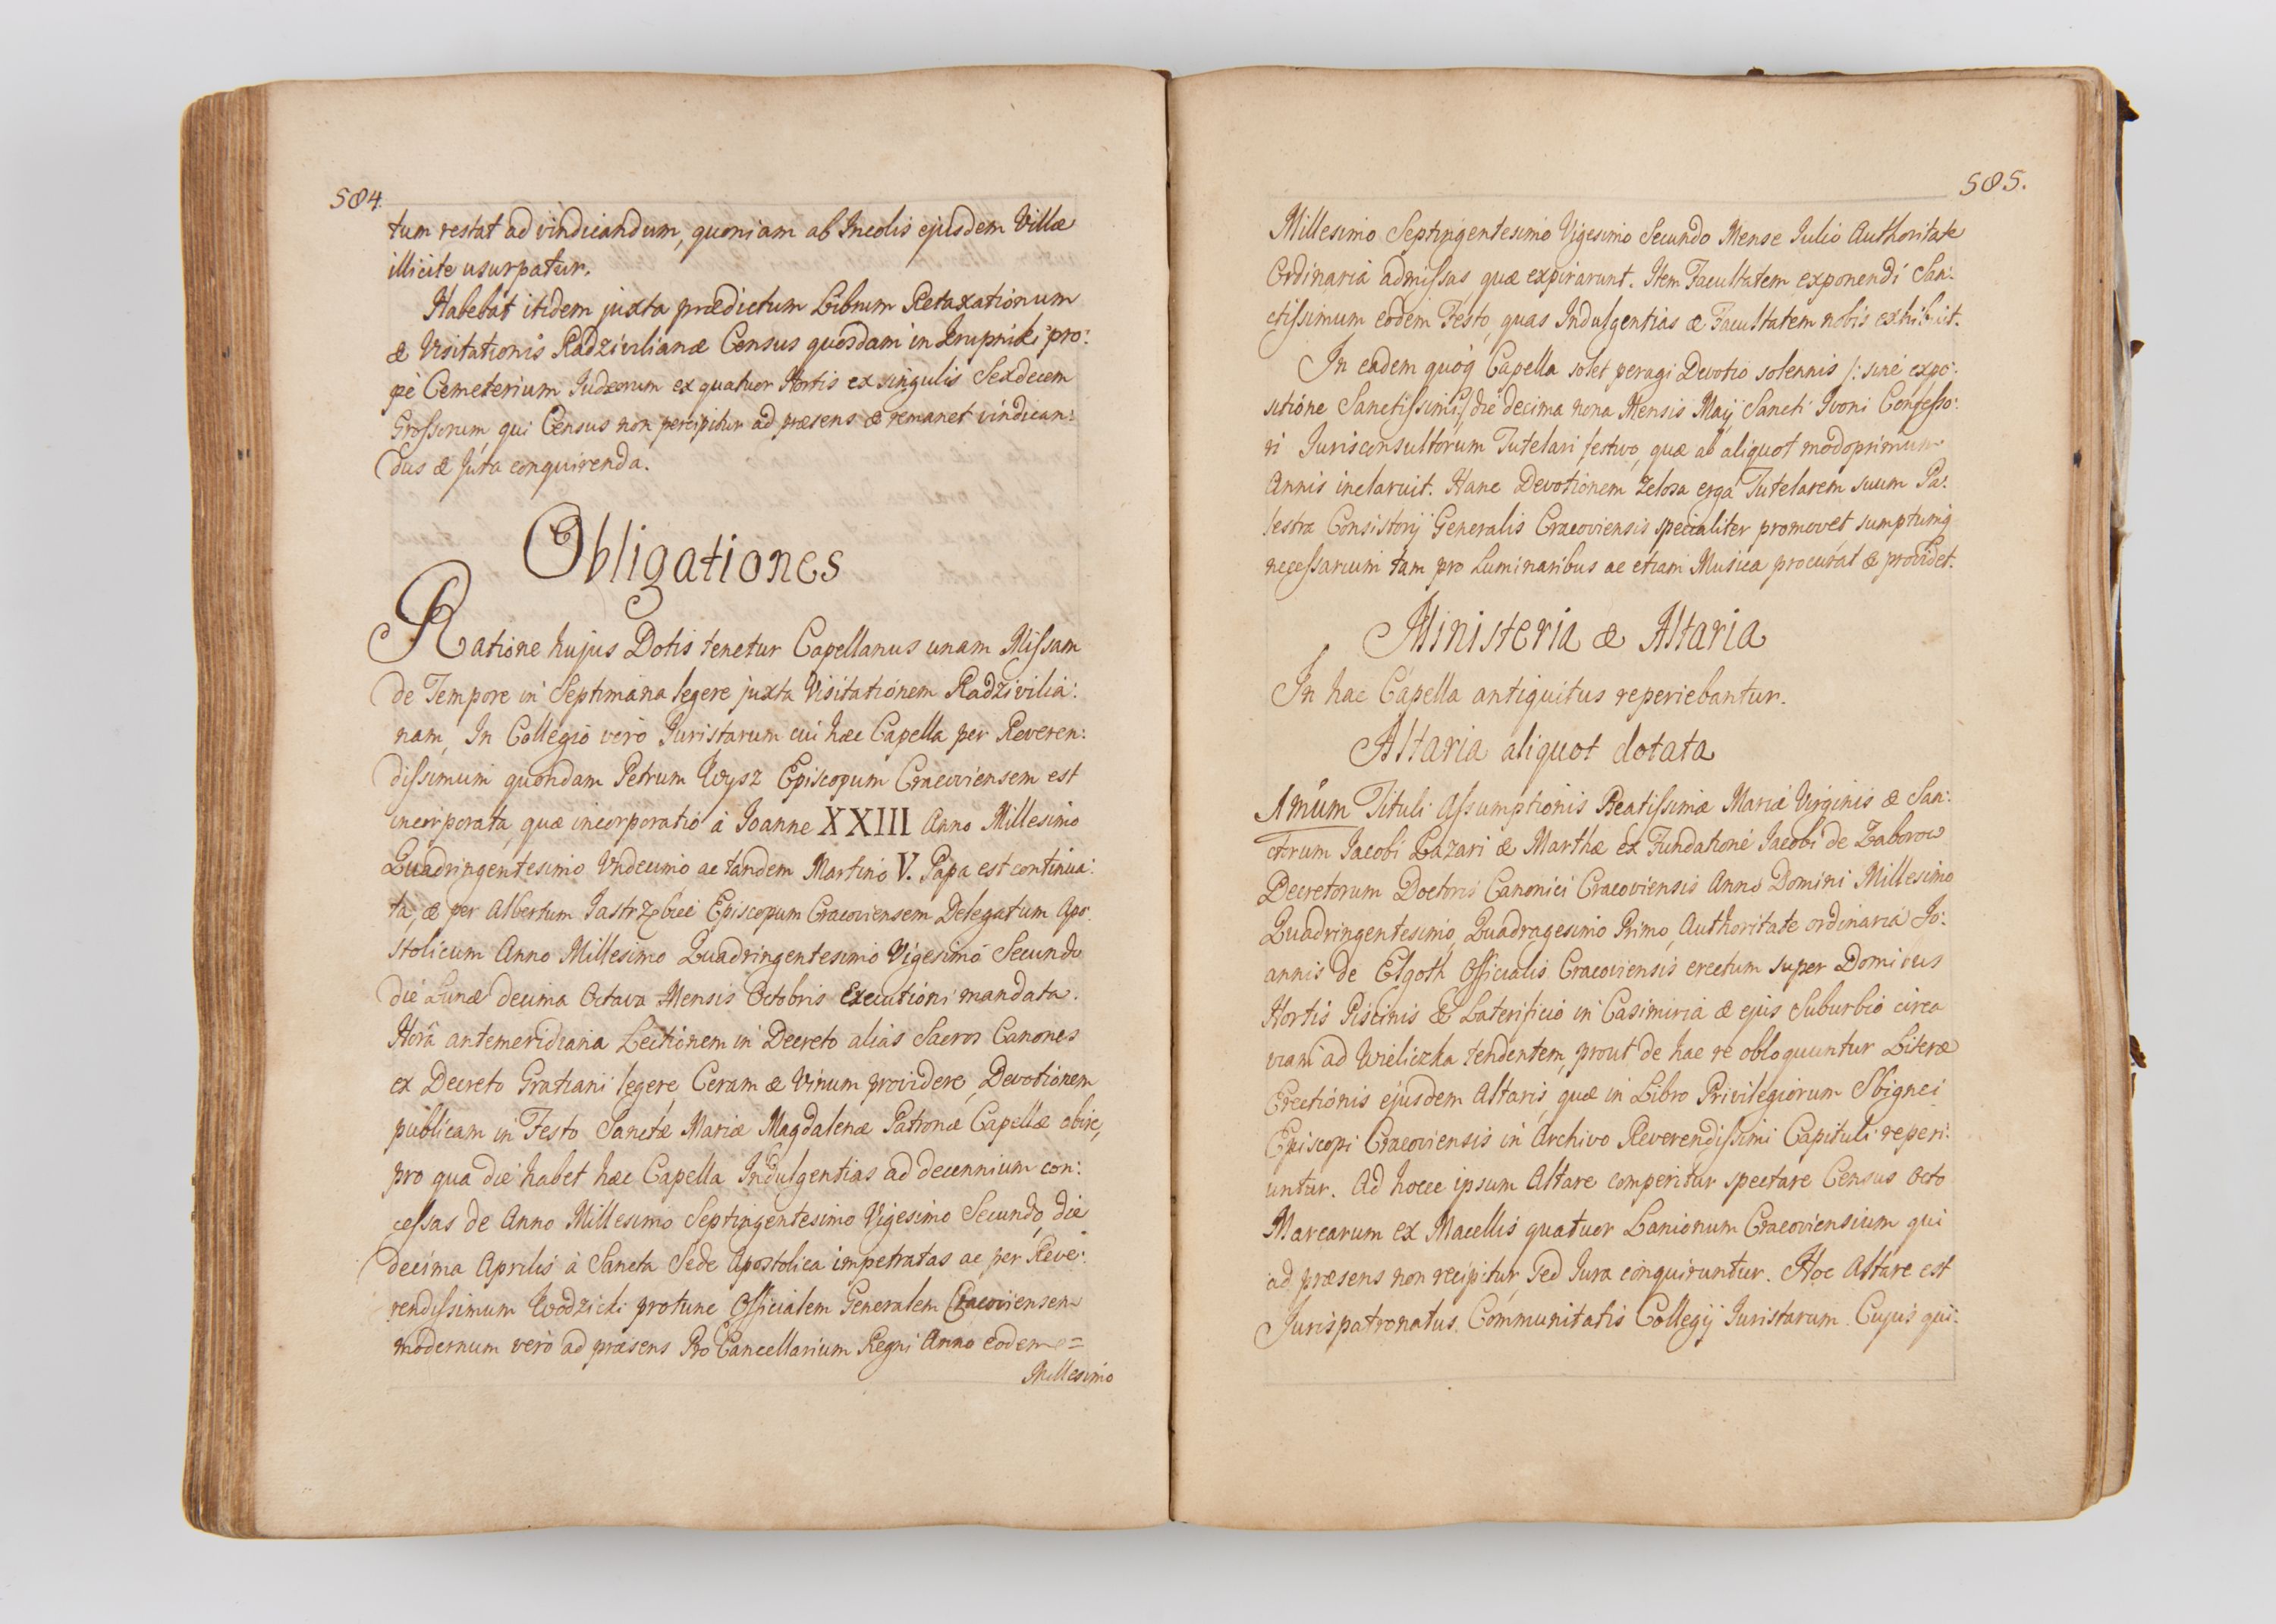 584.
tum restat ad vindicandum, quoniam ab Incolis ejusdem Villæ
illicite usurpatur.
Habebat itidem juxta prædictum Librum Retaxationum
& Visitationis Radzivilianæ Census quosdam in Krupniki pro:
pè Cemeterium Judæorum ex quatuor Hortis ex singulis Sexdecem
Grossorum, qui Census non percipitur ad præsens & remanet vindican:
dus & Jura conquirenda.
Obligationes
Ratione hujus Dotis tenetur Capellanus unam Missam
de Tempore in Septimana legere juxta Visitationem Radzivilia:
nam, In Collegio verò Juristarum cui hæc Capella per Reveren:
dissimum quondam Petrum Wysz Episcopum Cracoviensem est
incorporata, quæ incorporatio à Joanne XXIII Anno Millesimo
Quadringentesimo Undecimo ac tandem Martino V. Papa est continua:
ta, & per Albertum Jastrzębiec Episcopum Cracoviensem Delegatum Apo:
stolicum Anno Millesimo Quadringentesimo Vigesimo Secundo
die Lunæ decima Octava Mensis Octobris Executioni mandata.
Horâ antemeridiana Lectionem in Decreto aliàs Sacros Canones
ex Decreto Gratiani legere, Ceram & Vinum providere, Devotionem
publicam in Festo Sanctæ Mariæ Magdalenæ Patronæ Capellæ obire,
pro qua die habet hæc Capella Indulgentias ad decennium con:
cessas de Anno Millesimo Septingentesimo Vigesimo Secundo, die
decima Aprilis à Sancta Sede Apostolica impetratas ac per Reve:
rendissimum Wodzicki protunc Officialem Generalem Cracoviensem
modernum verò ad præsens ProCancellarium Regni Anno eodem =
Millesimo
585.
Millesimo Septingentesimo Vigesimo Secundo Mense Julio Authoritate
Ordinaria admissas, quæ expirarunt. Item Facultatem exponendi San:
ctissimum eodem Festo, quas Indulgentias & Facultatem nobis exhibuit.
In eadem quoq Capella solet peragi Devotio solennis /: sine expo:
sitione Sanctissimi :/ die decima nona Mensis Maij Sancti Ivoni Confesso:
ri Jurisconsultorum Tutelari festivo, quæ ab aliquot modoprimum
Annis inclaruit. Hanc Devotionem zelosa erga Tutelarem suum Pa:
lestra Consistorij Generalis Cracoviensis specialiter promovet sumptumq
necessarium tam pro Luminaribus ac etiam Musica procurat & providet.
Ministeria & Altaria
In hac Capella antiquitus reperiebantur.
Altaria aliquot dotata
1mum Tituli Assumptionis Beatissimæ Mariæ Virginis & San:
ctorum Jacobi Lazari & Marthæ ex Fundatione Jacobi de Zaborow
Decretorum Doctoris Canonici Cracoviensis Anno Domini Millesimo
Quadringentesimo, Quadragesimo Primo, Authoritate ordinaria Jo:
annis de Elgoth Officialis Cracoviensis erectum super Domibus
Hortis Piscinis & Laterificio in Casimiria & ejus Suburbio circa
viam ad Wieliczka tendentem, prout de hac re obloquuntur Literæ
Erectionis ejusdem Altaris, quæ in Libro Privilegiorum Sbignei
Episcopi Cracoviensis in Archivo Reverendissimi Capituli reperi:
untur. Ad hocce ipsum Altare comperitur spectare Census Octo
Marcarum ex Macellis quatuor Lanionum Cracoviensium qui
ad præsens non recipitur, sed Jura conquiruntur. Hoc Altare est
Jurispatronatus. Communitatis Collegij Juristarum. Cujus qui: